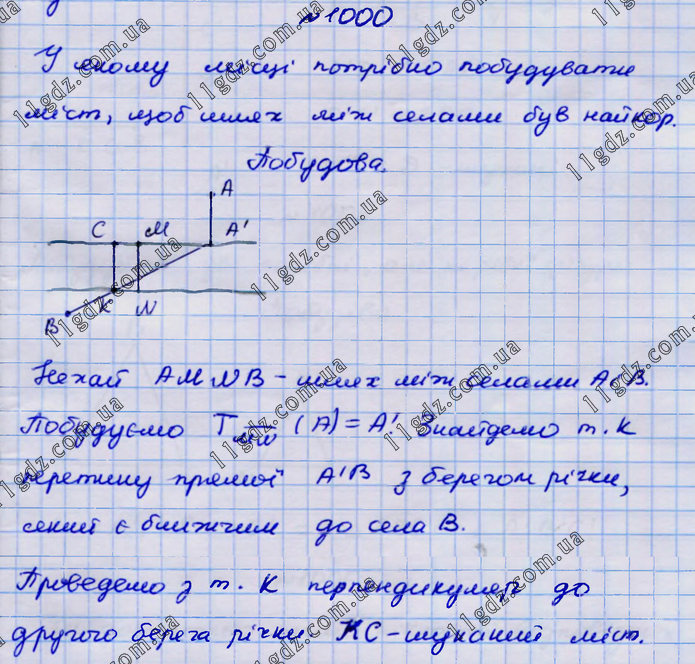 №1000
У якому місці потрібно побудувати
міст, щоб шлях між селами був найкор.
Побудова.
A
C M A'
K N
B
Нехай AMNB - шлях між селами A і B.
Побудуємо T MN (A) = A'. Знайдемо т. K
перетину прямої A'B з берегом річки,
який є ближчим до села B.
Проведемо з т. K перпендикуляр до
другого берега річки KC - шуканий міст.
11gdz.com.ua